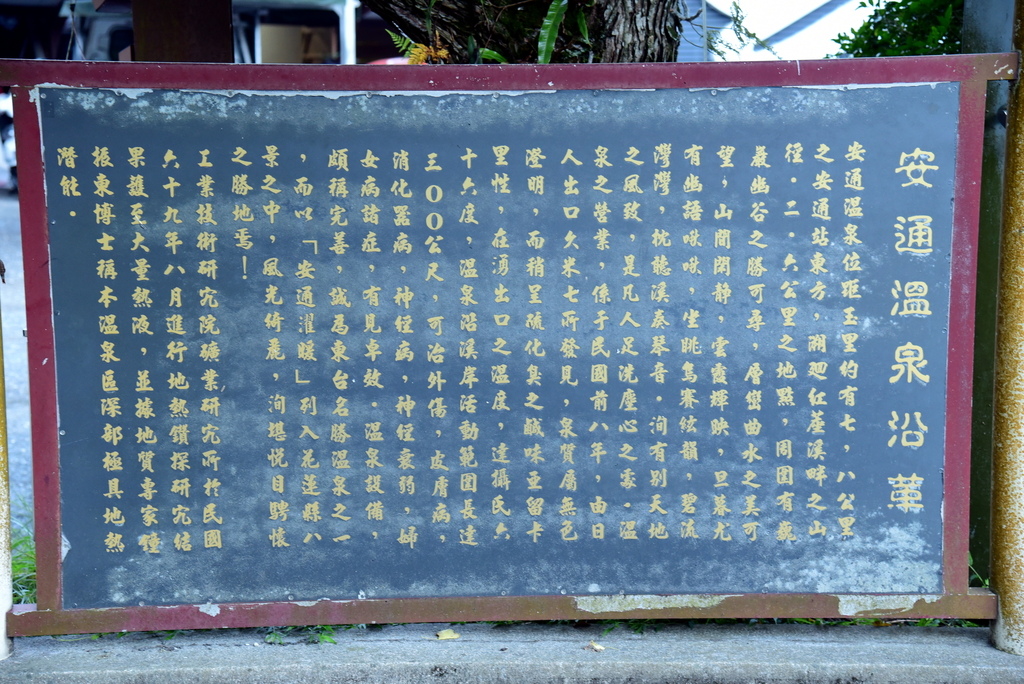 安通溫泉沿革
安通溫泉位距玉里約有七．八公里
之安通站東方，溯迴紅座溪畔之山
徑．二．六公里之地點，周圍有巍
巖幽谷之勝可尋，層巒曲水之美可
望，山間閑靜，雲霞輝映，旦暮尤
有幽語啾啾，坐眺鳥賽絃韻，碧流
灣灣，枕聽溪奏琴音．洵有別天地
之風致，是凡人足洗塵心之處．溫
泉之營業，係于民國前八年，由日
人出口久米七所發見，泉質屬無色
澄明，而稍呈硫化臭之鹹味亞留卡
里性，在湧出口之溫度，達攝氏六
十六度，溫泉沿溪岸活動範圍長達
三００公尺，可治外傷，皮膚病，
消化器病，神經病，神經衰弱，婦
女病諸症，有見卓效．溫泉設備，
頗稱完善，誠為東台名勝溫泉之一
，而以「安通濯暖」列入花蓮縣八
景之中，風光綺麗，洵堪悅目騁懷
之勝地焉！
工業技術研究院礦業研究所於民國
六十九年八月進行地熱鑽探研究結
果獲至大量熱液，並據地質專家鐘
振東博士稱本溫泉區深部極具地熱
潛能．